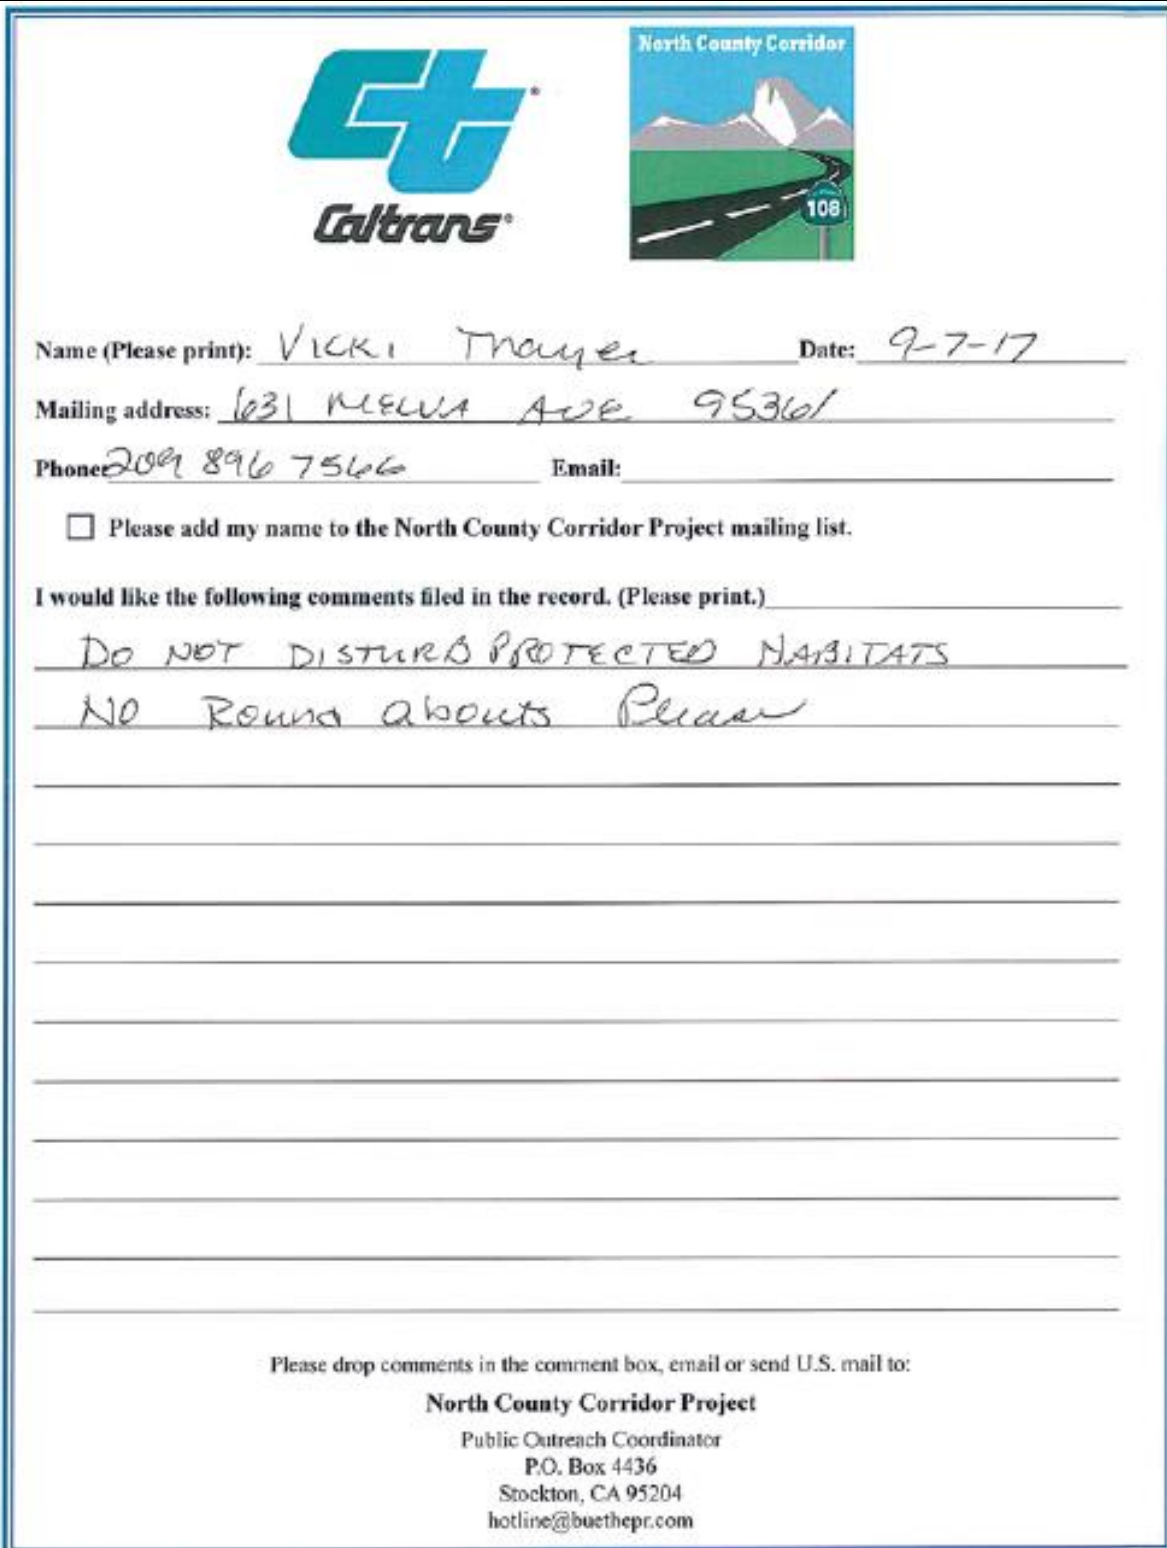 Ct
Caltrans
North County Corridor
108
Name (Please print): VICKI Thayer Date: 9-7-17
Mailing address: 1631 MELVA AVE 95361
Phone: 209 896 7566 Email:
Please add my name to the North County Corridor Project mailing list.
I would like the following comments filed in the record. (Please print.)
DO NOT DISTURB PROTECTED HABITATS
NO Round abouts Please
Please drop comments in the comment box, email or send U.S. mail to:
North County Corridor Project
Public Outreach Coordinator
P.O. Box 4436
Stockton, CA 95204
hotline@buethepr.com